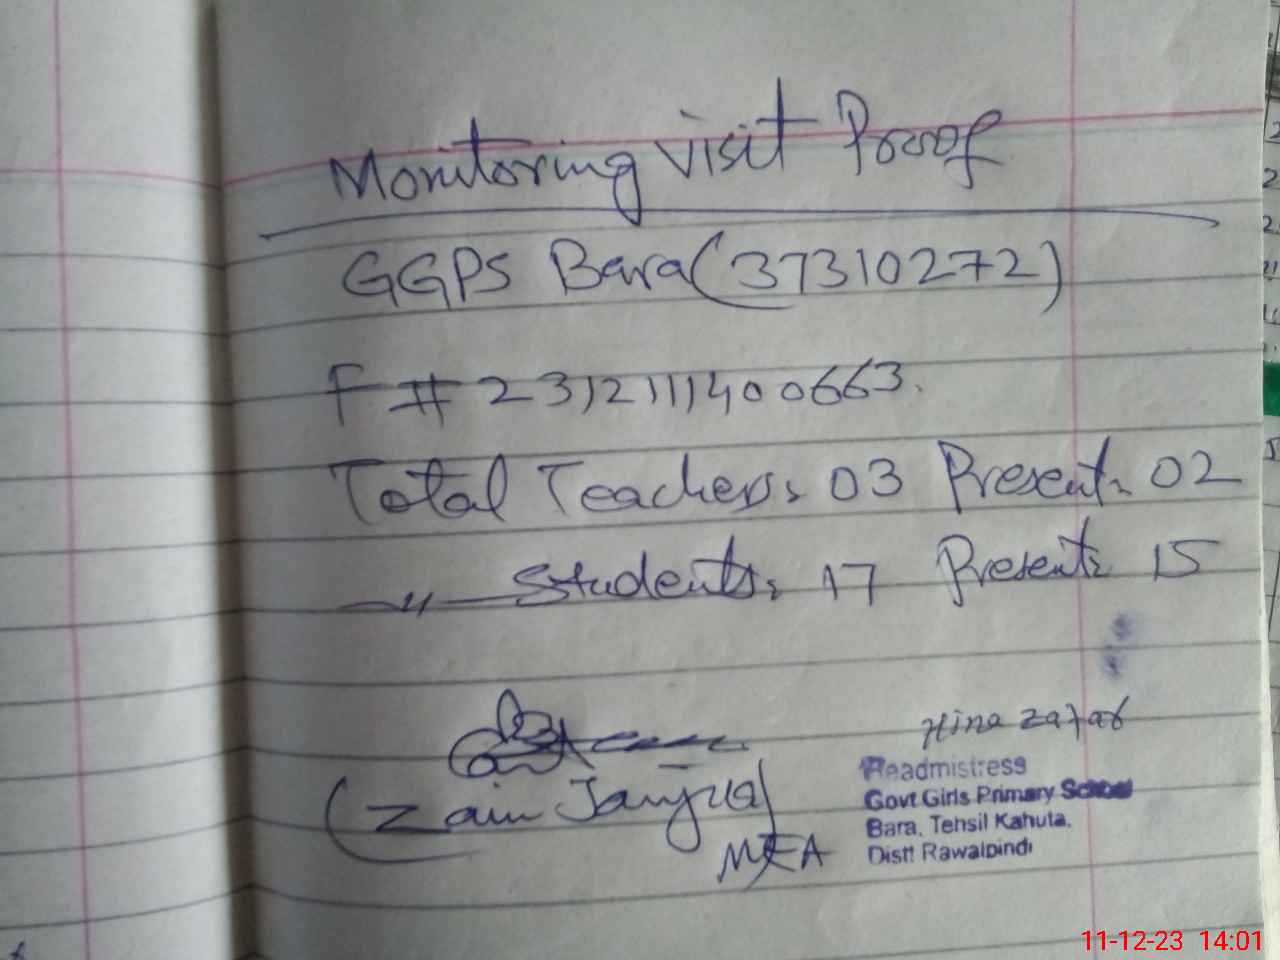 Monitoring visit Proof
GGPS Bara (37310272)
F # 231211400663.
Total Teachers: 03 Present: 02
–〃– Students: 17 Present: 15
Hina Zafar
(Zain Janjua)
MEA
Headmistress
Govt Girls Primary School
Bara, Tehsil Kahuta,
Distt Rawalpindi
11-12-23 14:01